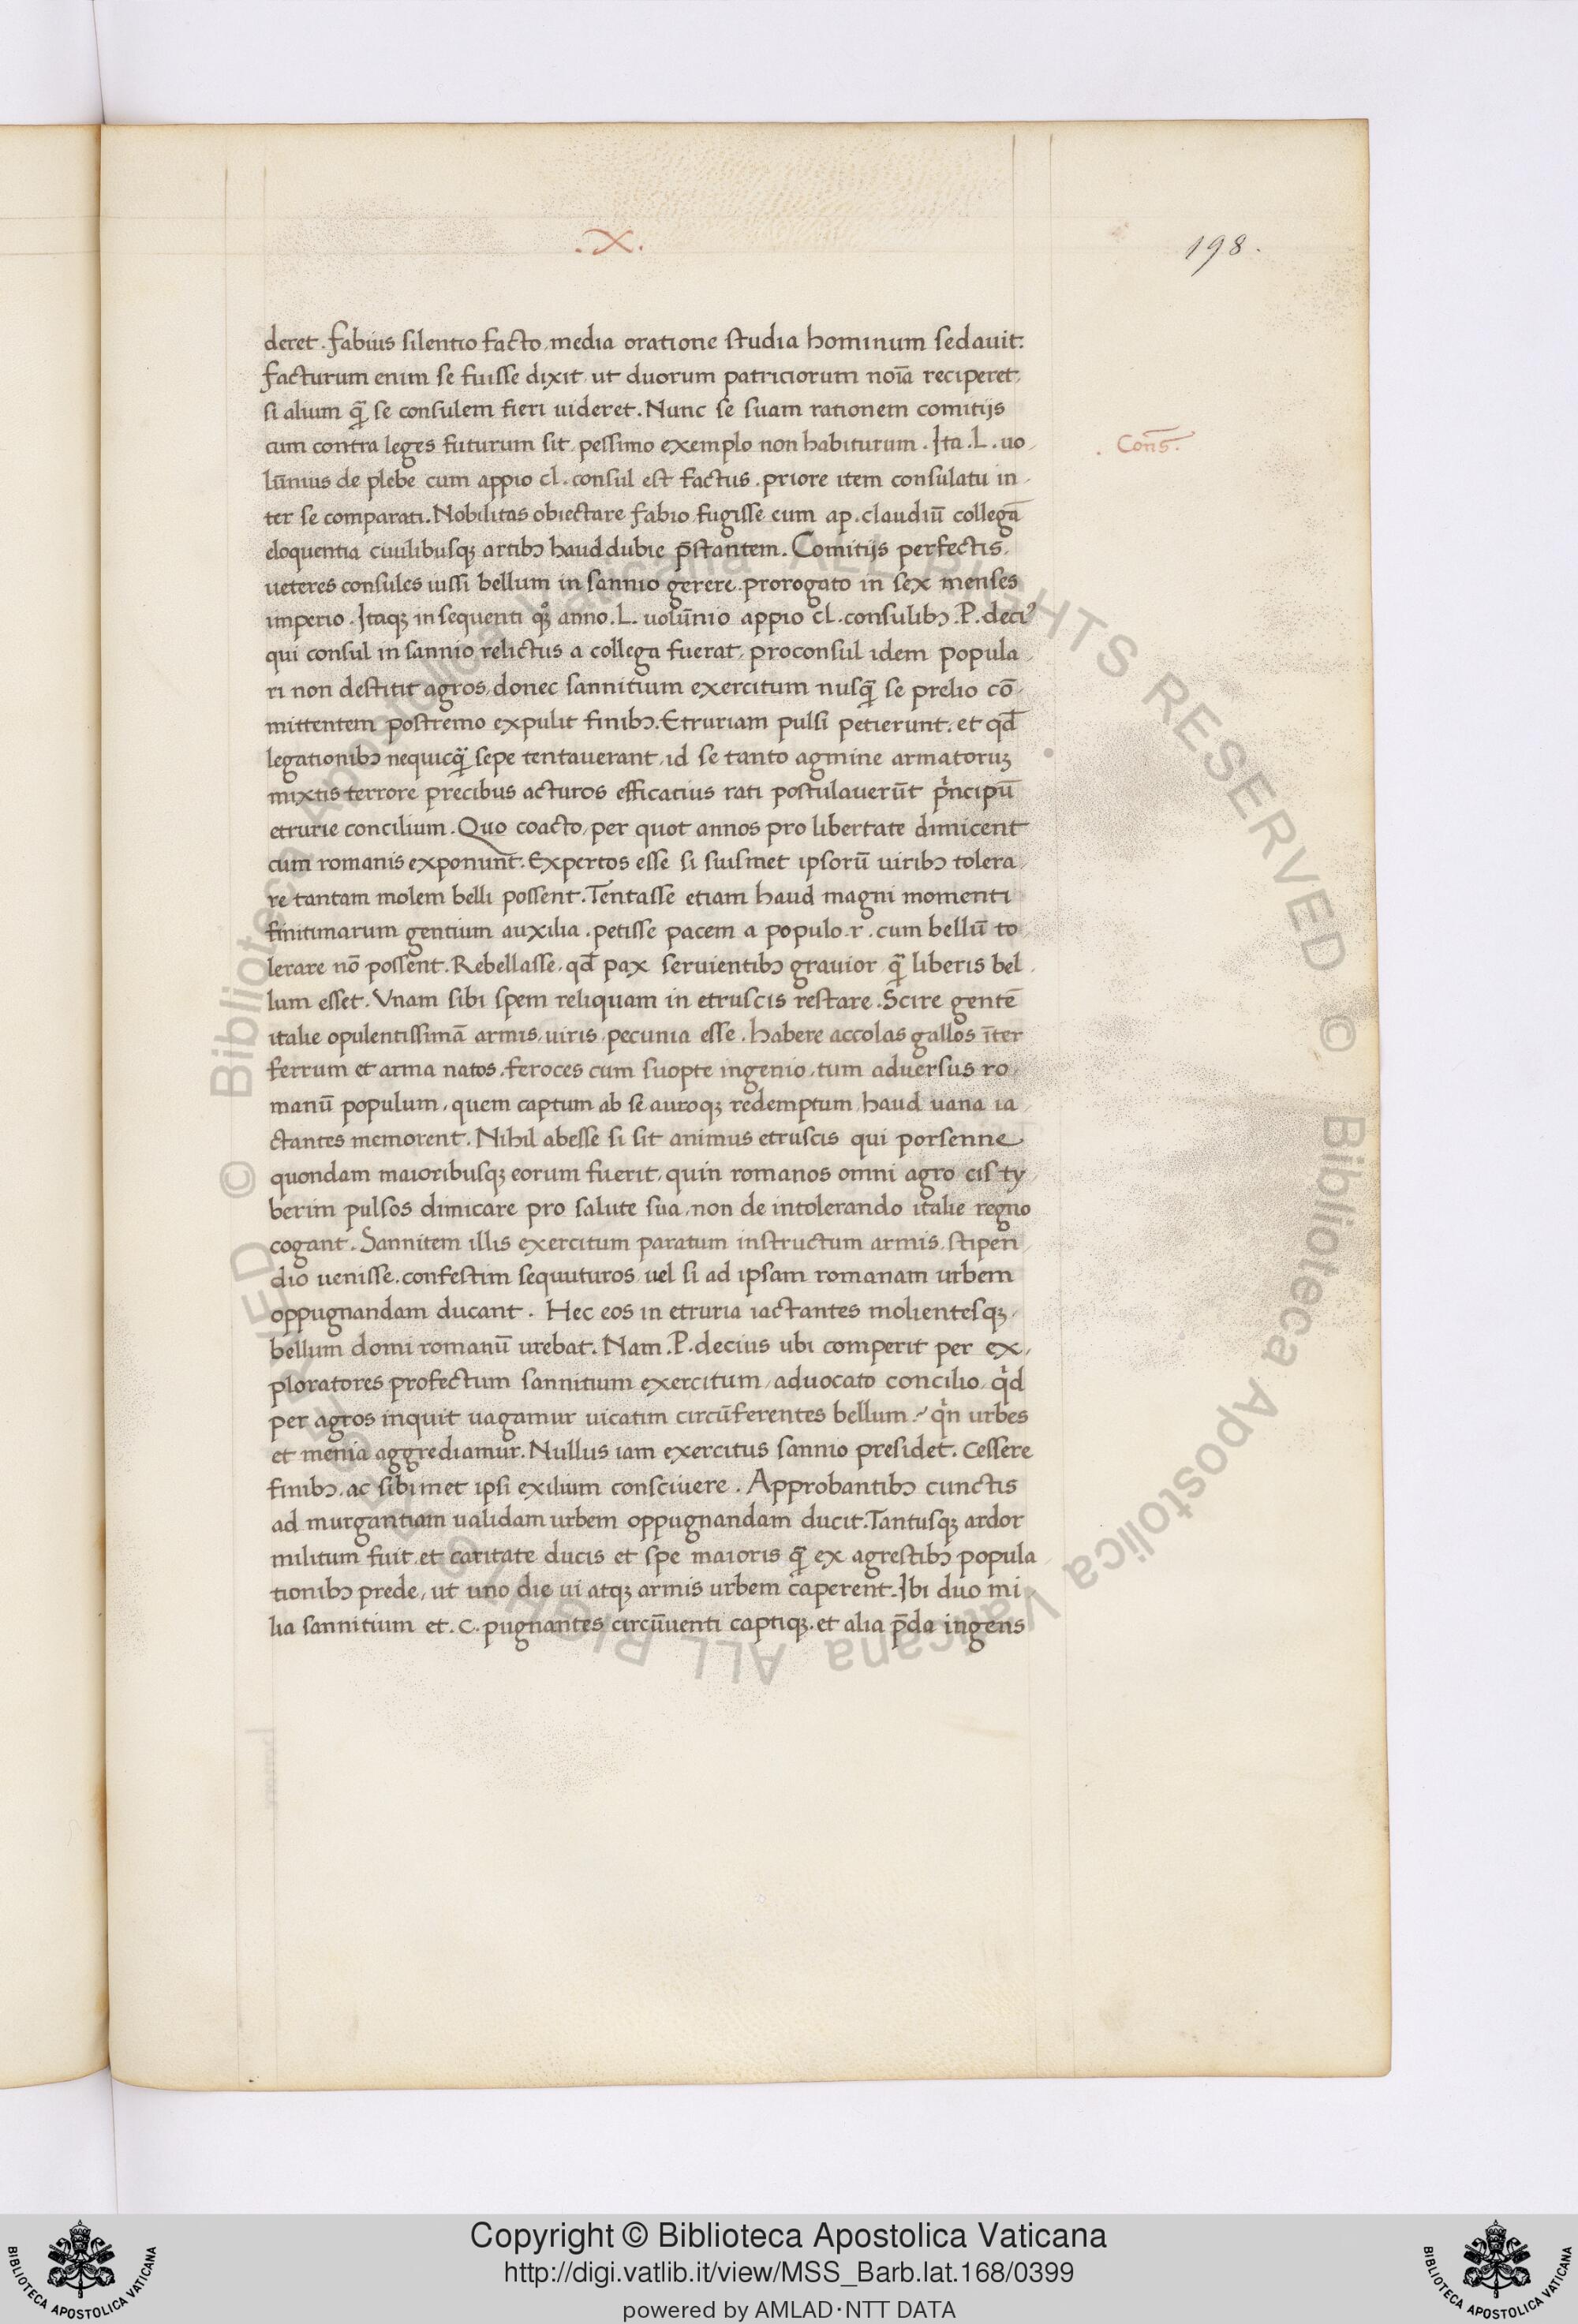 .X.
198.
deret. fabius silentio facto, media oratione studia hominum sedauit:
facturum enim se fuisse dixit, ut duorum patriciorum noīa reciperet,
si alium q̄ se consulem fieri uideret. Nunc se suam rationem comitijs
cum contra leges futurum sit, pessimo exemplo non habiturum. Ita .L. uo
. Cons̄.
lūnius de plebe cum appio cl. consul est factus. priore item consulatu in
ter se comparati. Nobilitas obiectare fabio fugisse eum ap. claudiū collegā
eloquentia ciuilibusq; artibꝫ haud dubie p̄stantem. Comitijs perfectis,
ueteres consules iussi bellum in sannio gerere. prorogato in sex menses
imperio. Itaq; insequenti qͦq; anno. L. uolūnio appio cl. consulibꝫ .P. deciꝰ
qui consul in sannio relictus a collega fuerat, proconsul idem popula
ri non destitit agros, donec sannitium exercitum nusq̄ se prelio cō
mittentem postremo expulit finibꝫ. Etruriam pulsi petierunt. et qd̄
legationibꝫ nequicq̄ sepe tentauerant, id se tanto agmine armatoruꝫ
mixtis terrore precibus acturos efficatius rati postulauerūt pͥncipū
etrurie concilium. Quo coacto, per quot annos pro libertate dimicent
cum romanis exponunt. Expertos esse si suismet ipsorū uiribꝫ tolera
re tantam molem belli possent. Tentasse etiam haud magni momenti
finitimarum gentium auxilia. petisse pacem a populo .r. cum bellū to
lerare nō possent. Rebellasse, qd̄ pax seruientibꝫ grauior q̄ liberis bel
lum esset. Vnam sibi spem reliquam in etruscis restare. Scire gentē
italie opulentissimā armis, uiris, pecunia esse. habere accolas gallos īter
ferrum et arma natos, feroces cum suopte ingenio, tum aduersus ro
manū populum, quem captum ab se auroq; redemptum, haud uana ia
ctantes memorent. Nihil abesse si sit animus etruscis qui porsenne
quondam maioribusq; eorum fuerit, quin romanos omni agro cis ty
berim pulsos dimicare pro salute sua, non de intolerando italie regno
cogant. Sannitem illis exercitum paratum instructum armis, stipen
dio uenisse. confestim sequuturos uel si ad ipsam romanam urbem
oppugnandam ducant. Hec eos in etruria iactantes molientesq;
bellum domi romanū urebat. Nam .P. decius ubi comperit per ex
ploratores profectum sannitium exercitum, aduocato concilio, qͥd
per agros inquit uagamur uicatim circūferentes bellum? qͥn urbes
et menia aggrediamur. Nullus iam exercitus sannio presidet. Cessere
finibꝫ. ac sibimet ipsi exilium consciuere. Approbantibꝫ cunctis
ad murgantiam ualidam urbem oppugnandam ducit. Tantusq; ardor
militum fuit et caritate ducis et spe maioris q̄ ex agrestibꝫ popula
tionibꝫ prede, ut uno die ui atq; armis urbem caperent. Ibi duo mi
lia sannitium et .C. pugnantes circūuenti captiq;. et alia p̄da ingens
© Biblioteca Apostolica Vaticana ALL RIGHTS RESERVED © Biblioteca Apostolica Vaticana ALL RIGHTS RESERVED
Copyright © Biblioteca Apostolica Vaticana
http://digi.vatlib.it/view/MSS_Barb.lat.168/0399
powered by AMLAD·NTT DATA
BIBLIOTECA APOSTOLICA VATICANA
BIBLIOTECA APOSTOLICA VATICANA